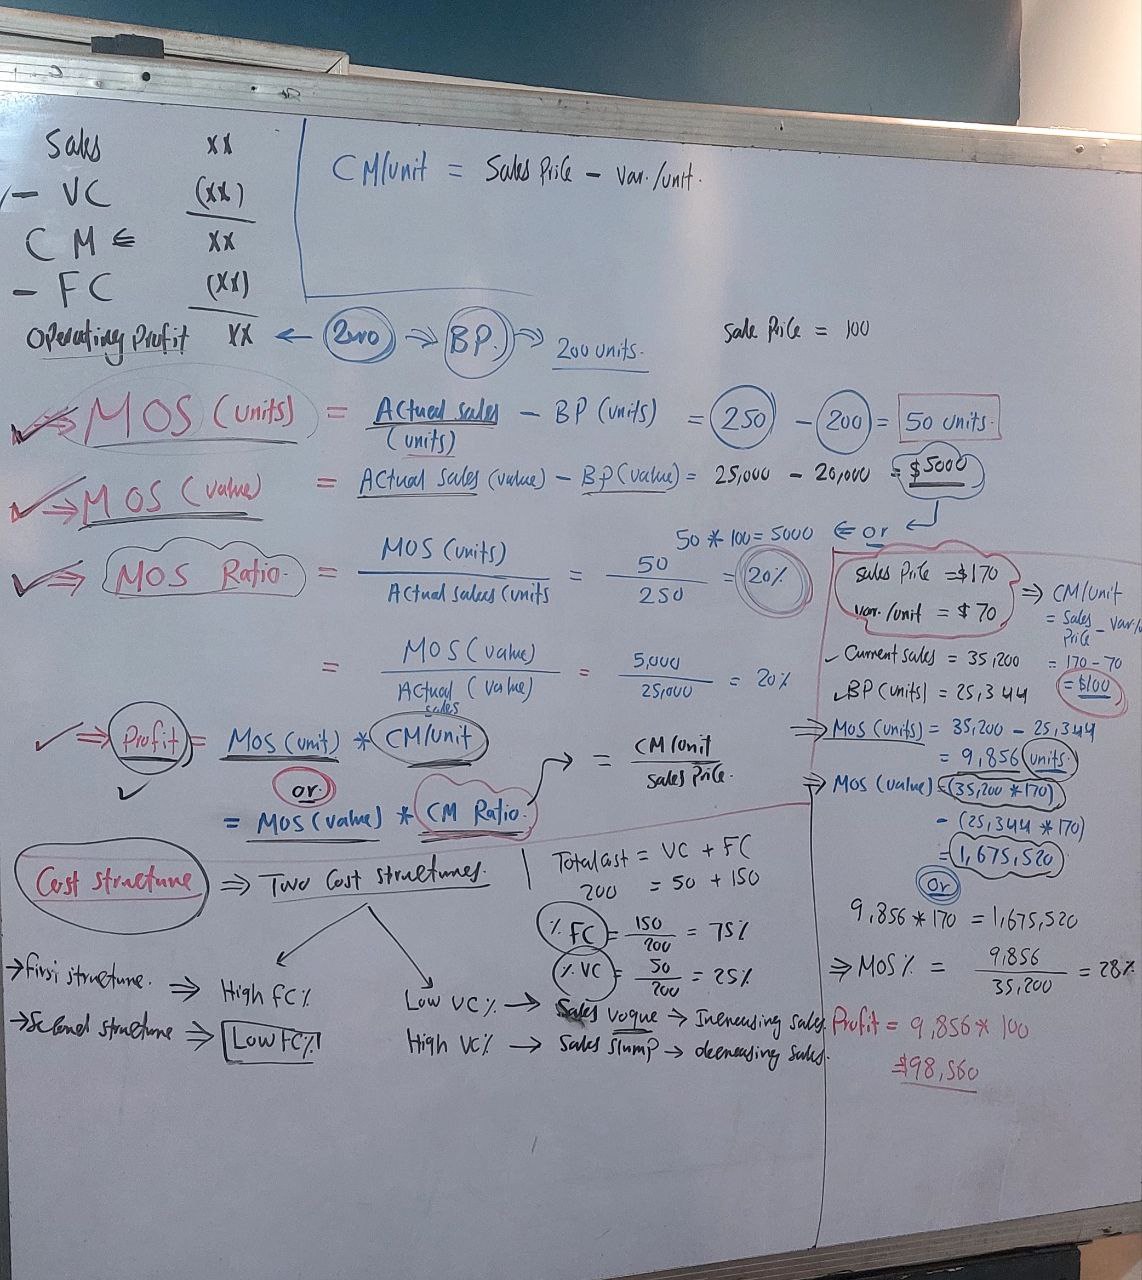 Sales xx
- VC (xx)
CM ⇐ xx
- FC (xx)
Operating Profit xx ← Zero ⇒ BP. ⇒ 200 units.
CM/unit = Sales Price - var./unit.
Sale Price = 100
⇒ MOS (units) = Actual sales (units) - BP (units) = 250 - 200 = 50 units.
⇒ MOS (value) = Actual sales (value) - BP (value) = 25,000 - 20,000 = $5000
50 * 100 = 5000 ⇐ or
⇒ MOS Ratio. = MOS (units) / Actual sales (units = 50 / 250 = 20%
= MOS (value) / Actual sales (value) = 5,000 / 25,000 = 20%
⇒ Profit = MOS (unit) * CM/unit
or
= MOS (value) * CM Ratio. → = CM/unit / Sales Price.
Cost structure ⇒ Two Cost structures.
→ First structure. ⇒ High FC% Low VC% → Sales vogue → Increasing sales.
→ Second structure ⇒ Low FC% High VC% → Sales slump → decreasing sales.
Total cost = VC + FC
200 = 50 + 150
% FC = 150 / 200 = 75%
% VC = 50 / 200 = 25%
Sales Price = $170
var./unit = $70
⇒ CM/unit
= Sales Price - var/u
= 170 - 70
= $100
Current sales = 35,200
BP (units) = 25,344
⇒ MOS (units) = 35,200 - 25,344
= 9,856 units.
⇒ MOS (value) = (35,200 * 170)
- (25,344 * 170)
= 1,675,520
or
9,856 * 170 = 1,675,520
⇒ MOS % = 9,856 / 35,200 = 28%
Profit = 9,856 * 100
= $98,560